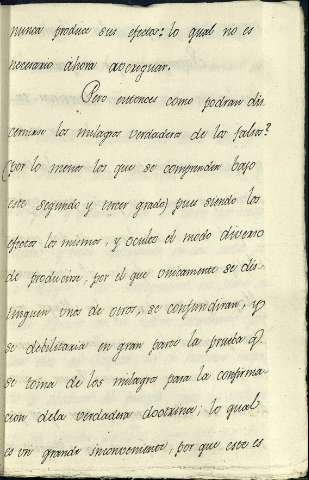 nunca produce sus efectos: lo qual no es
necesario ahora averiguar.
Pero entonces como podran dis
cernirse los milagros verdaderos de los falsos?
(por lo menos los que se comprenden bajo
este segundo y tercer grado) pues siendo los
efectos los mismos, y oculto el modo diverso
de producirse, por el que unicamente se dis-
tinguen unos de otros, se confundiran, y
se debilitaria en gran parte la prueba q.
se toma de los milagros para la confirma
cion dela verdadera doctrina; lo qual
es vn grande inconveniente, por que este es